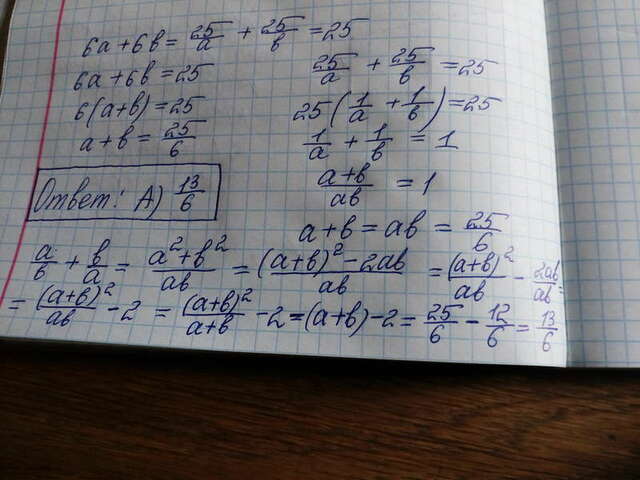 6a+6b = 25/a + 25/b = 25
6a+6b = 25
6(a+b) = 25
a+b = 25/6
Ответ: А) 13/6
25/a + 25/b = 25
25(1/a + 1/b) = 25
1/a + 1/b = 1
a+b/ab = 1
a+b = ab = 25/6
a/b + b/a = a²+b²/ab = (a+b)²-2ab/ab = (a+b)²/ab - 2ab/ab =
= (a+b)²/ab - 2 = (a+b)²/a+b - 2 = (a+b) - 2 = 25/6 - 12/6 = 13/6